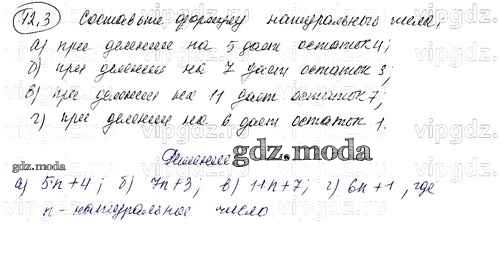 12.3 Составьте формулу натурального числа,
а) при делении на 5 дает остаток 4;
б) при делении на 7 дает остаток 3;
в) при делении на 11 дает остаток 7;
г) при делении на 6 дает остаток 1.
Решение
gdz.moda
gdz.moda
а) 5·n+4; б) 7n+3; в) 11n+7; г) 6n+1, где
n - натуральное число